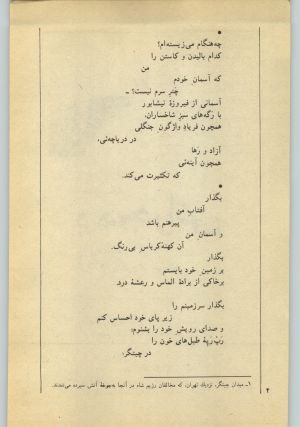 ●
چه هنگام می‌زیسته‌ام؟
کدام بالیدن و کاستن را
من
که آسمان خودم
چتر سرم نیست؟ ـ
آسمانی از فیروزهٔ نیشابور
با رگه‌های سبز شاخساران،
همچون فریاد واژگون جنگلی
در دریاچه‌ئی،
آزاد و رها
همچون آینه‌ئی
که تکثیرت می‌کند.
●
بگذار
آفتاب من
پیرهنم باشد
و آسمان من
آن کهنه کرباس بی‌رنگ.
بگذار
بر زمین خود بایستم
بر خاکی از برادهٔ الماس و رعشهٔ درد.
بگذار سرزمینم را
زیر پای خود احساس کنم
و صدای رویش خود را بشنوم:
رپ‌رپهٔ طبل‌های خون را
در چیتگر¹
۱ـ میدان چیتگر، نزدیك تهران، که مخالفان رژیم شاه در آنجا به جوخهٔ آتش سپرده می‌شدند.
۴